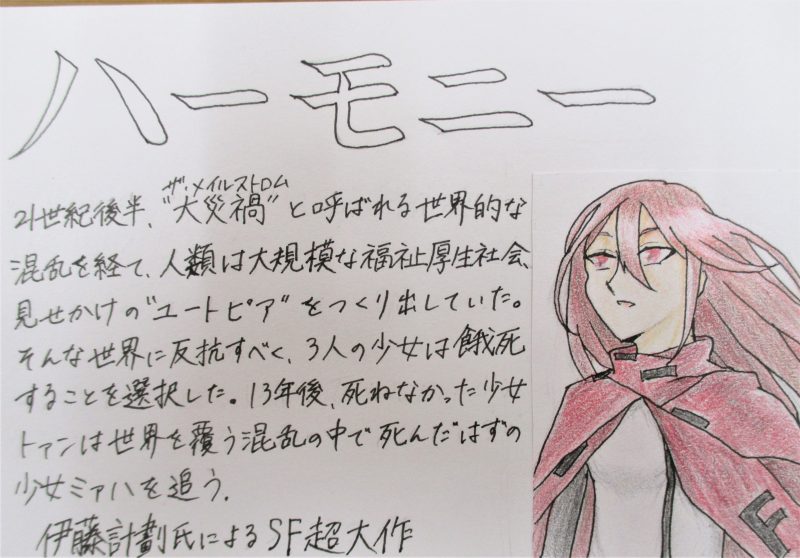 ハーモニー
ザ・メイルストロム
21世紀後半、"大災禍"と呼ばれる世界的な
混乱を経て、人類は大規模な福祉厚生社会、
見せかけの"ユートピア"をつくり出していた。
そんな世界に反抗すべく、3人の少女は餓死
することを選択した。13年後、死ねなかった少女
トァンは世界を覆う混乱の中で死んだはずの
少女ミァハを追う。
伊藤計劃氏によるSF超大作